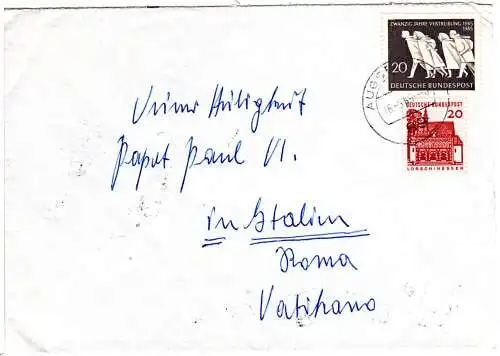 ZWANZIG JAHRE VERTREIBUNG 1945
1965
20
DEUTSCHE BUNDESPOST
AUGS
DEUTSCHE BUNDESPOST
20
LORSCH/HESSEN
Seiner Heiligkeit
Papst Paul VI.
in Italien
Roma
Vatikano